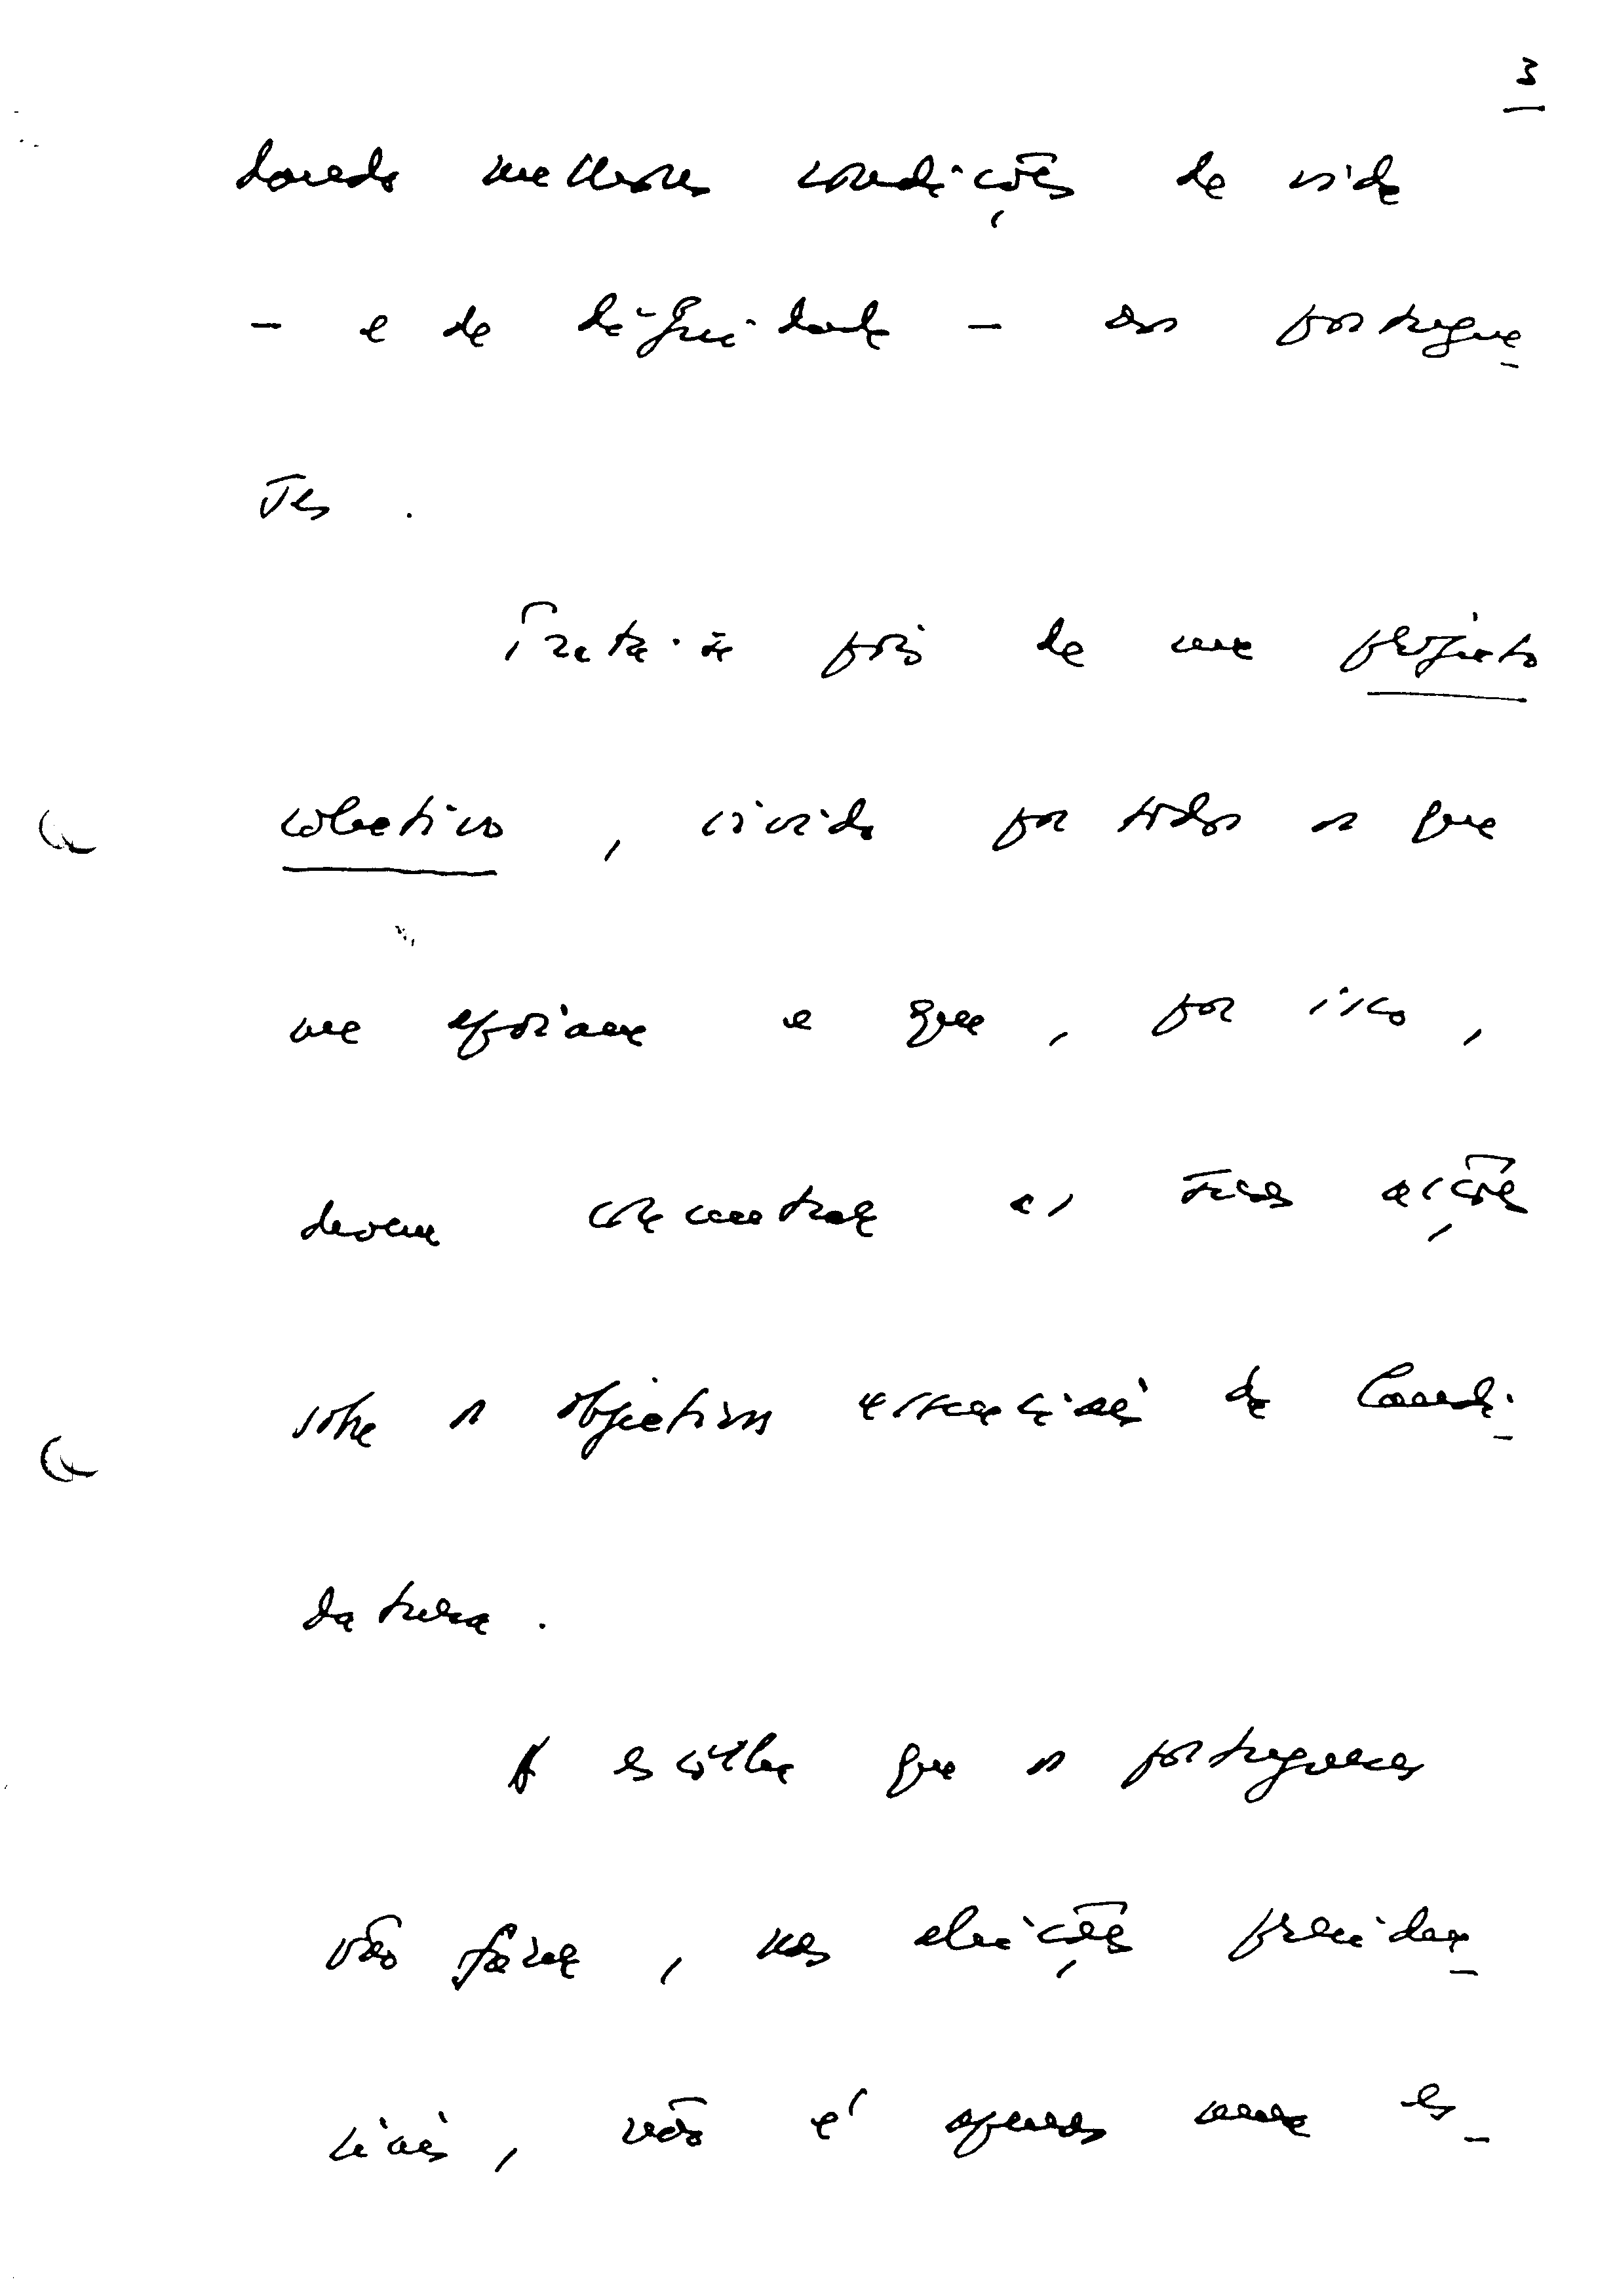 3
dando melhores condições de vida
- e de dignidade - aos portugue-
ses.
Trata-se pois de um projecto
colectivo, vivido por todos os que
me apoiam e que, por isso,
devem concentrar as suas acções
sobre os objectivos essenciais da Candi-
datura.
A escolha que os portugueses
vão fazer, nas eleições presiden-
ciais, não é apenas uma es-